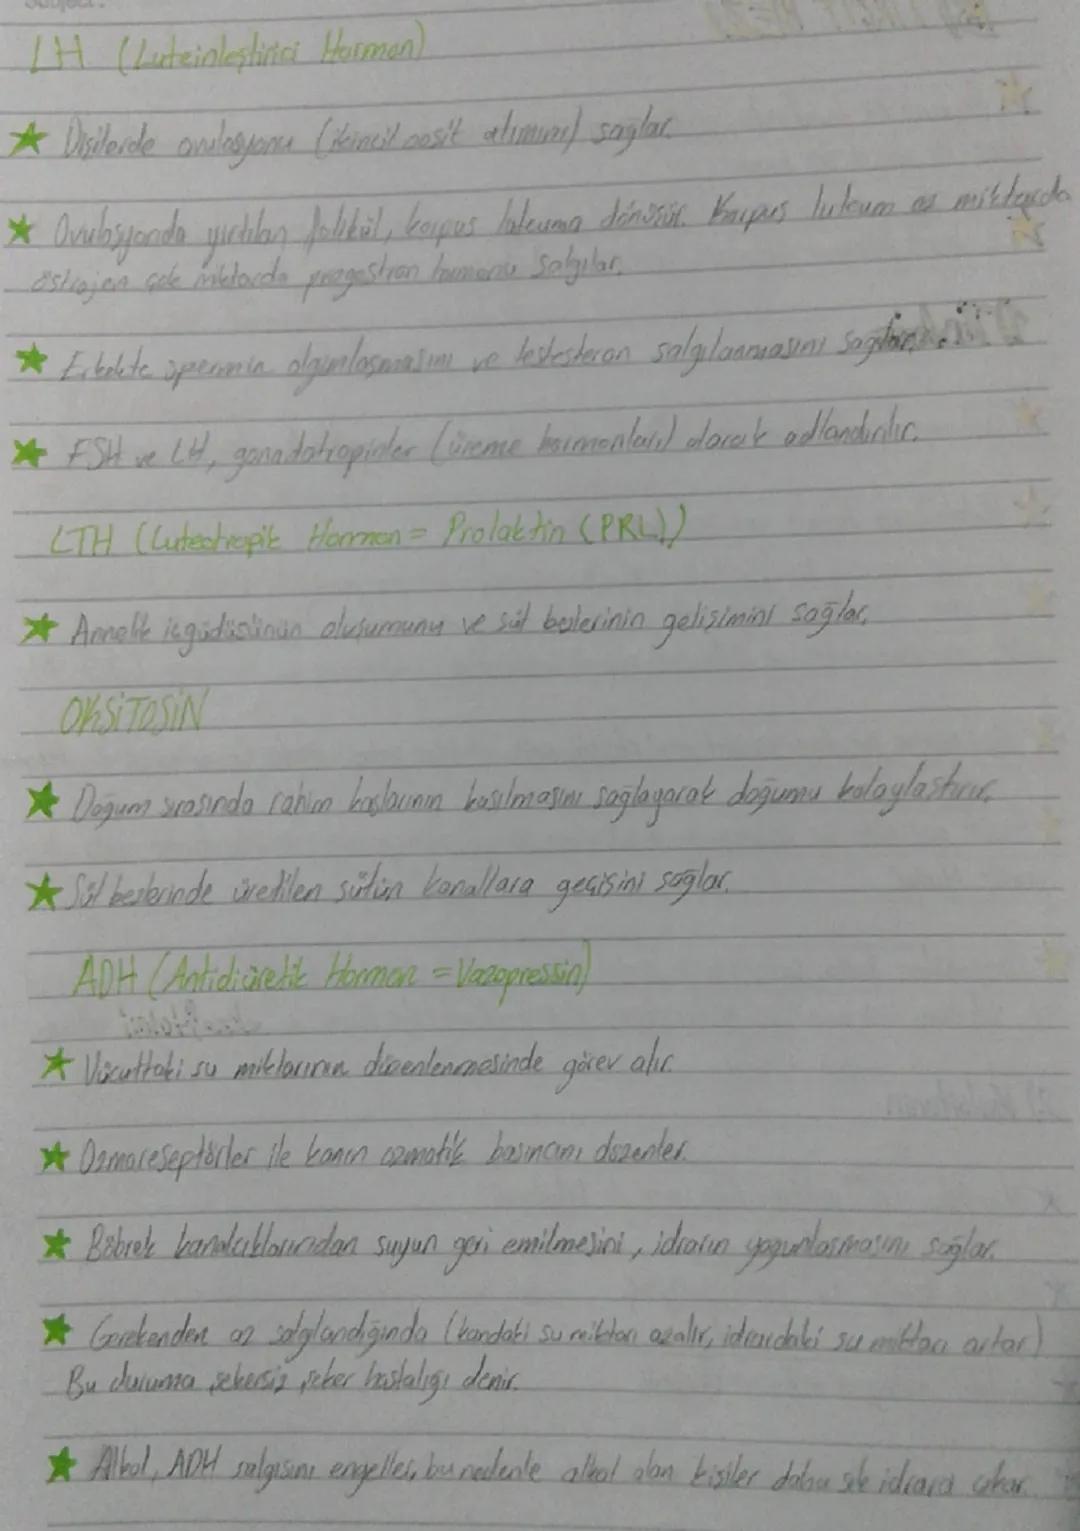 LH (Luteinleştirici Hormon)
★ Dişilerde ovulasyonu (ikincil oosit atımını) sağlar.
★ Ovulasyonda yırtılan folikül, korpus luteuma dönüşür. Korpus luteum az miktarda
östrojen çok miktarda progestron hormonu salgılar.
★ Erkekte spermin olgunlaşmasını ve testesteron salgılanmasını sağlar.
★ FSH ve LH, gonadotropinler (üreme hormonları) olarak adlandırılır.
LTH (Luteotropik Hormon = Prolaktin (PRL))
★ Annelik içgüdüsünün oluşumunu ve süt bezlerinin gelişimini sağlar.
OKSİTOSİN
★ Doğum sırasında rahim kaslarının kasılmasını sağlayarak doğumu kolaylaştırır.
★ Süt bezlerinde üretilen sütün kanallara geçişini sağlar.
ADH (Antidiüretik Hormon = Vazopressin)
★ Vücuttaki su miktarının düzenlenmesinde görev alır.
★ Ozmoreseptörler ile kanın ozmotik basıncını düzenler.
★ Böbrek kanalcıklarından suyun geri emilmesini, idrarın yoğunlaşmasını sağlar.
★ Gerekenden az salgılandığında (kandaki su miktarı azalır, idrardaki su miktarı artar)
Bu duruma şekersiz şeker hastalığı denir.
★ Alkol, ADH salgısını engeller, bu nedenle alkol alan kişiler daha sık idrara çıkar.